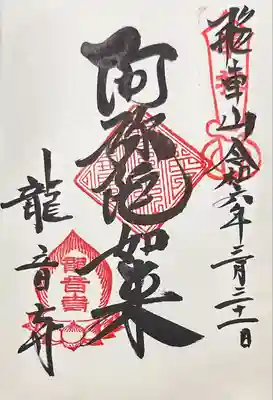 飛車山令和六年三月三十一日
阿弥陀如来
龍音寺
龍音寺